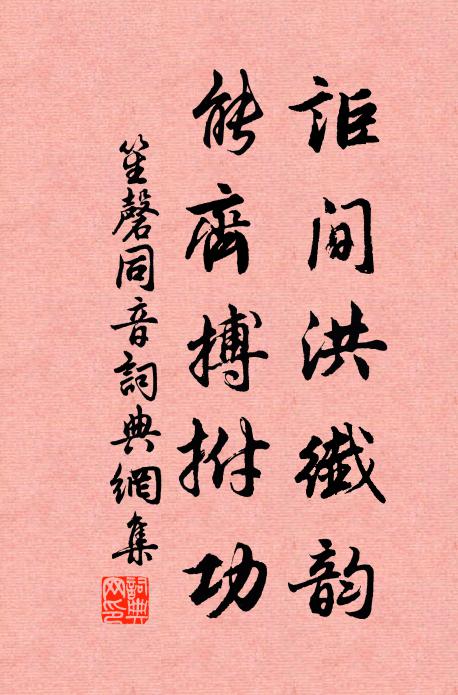 詎間洪纖韵
能齊搏拊功
笙磬同音詞典網集
詞典網印